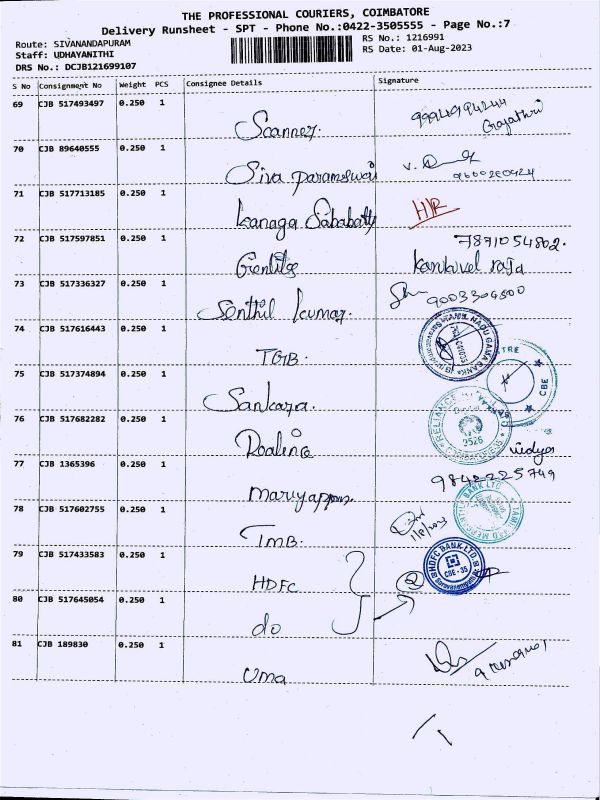 THE PROFESSIONAL COURIERS, COIMBATORE
Delivery Runsheet - SPT - Phone No.:0422-3505555 - Page No.:7
Route: SIVANANDAPURAM
RS No.: 1216991
Staff: UDHAYANITHI
RS Date: 01-Aug-2023
DRS No.: DCJB121699107
S No Consignment No Weight PCS Consignee Details Signature
69 CJB 517493497 0.250 1
Scanner.
Gayathri
70 CJB 89640555 0.250 1
Siva parameswari
71 CJB 517713185 0.250 1
Kanaga Sababathy
HR
72 CJB 517597851 0.250 1
7871054802.
73 CJB 517336327 0.250 1
Senthil kumar.
9003304500
74 CJB 517616443 0.250 1
TGB.
75 CJB 517374894 0.250 1
Sankara.
CBE
76 CJB 517682282 0.250 1
RELIANCE
9526
Vidya
77 CJB 1365396 0.250 1
9842225749
78 CJB 517602755 0.250 1
TMB.
1/8/2023
79 CJB 517433583 0.250 1
HDFC
HDFC BANK LTD.
CBE-35
80 CJB 517645054 0.250 1
do
81 CJB 189830 0.250 1
Uma